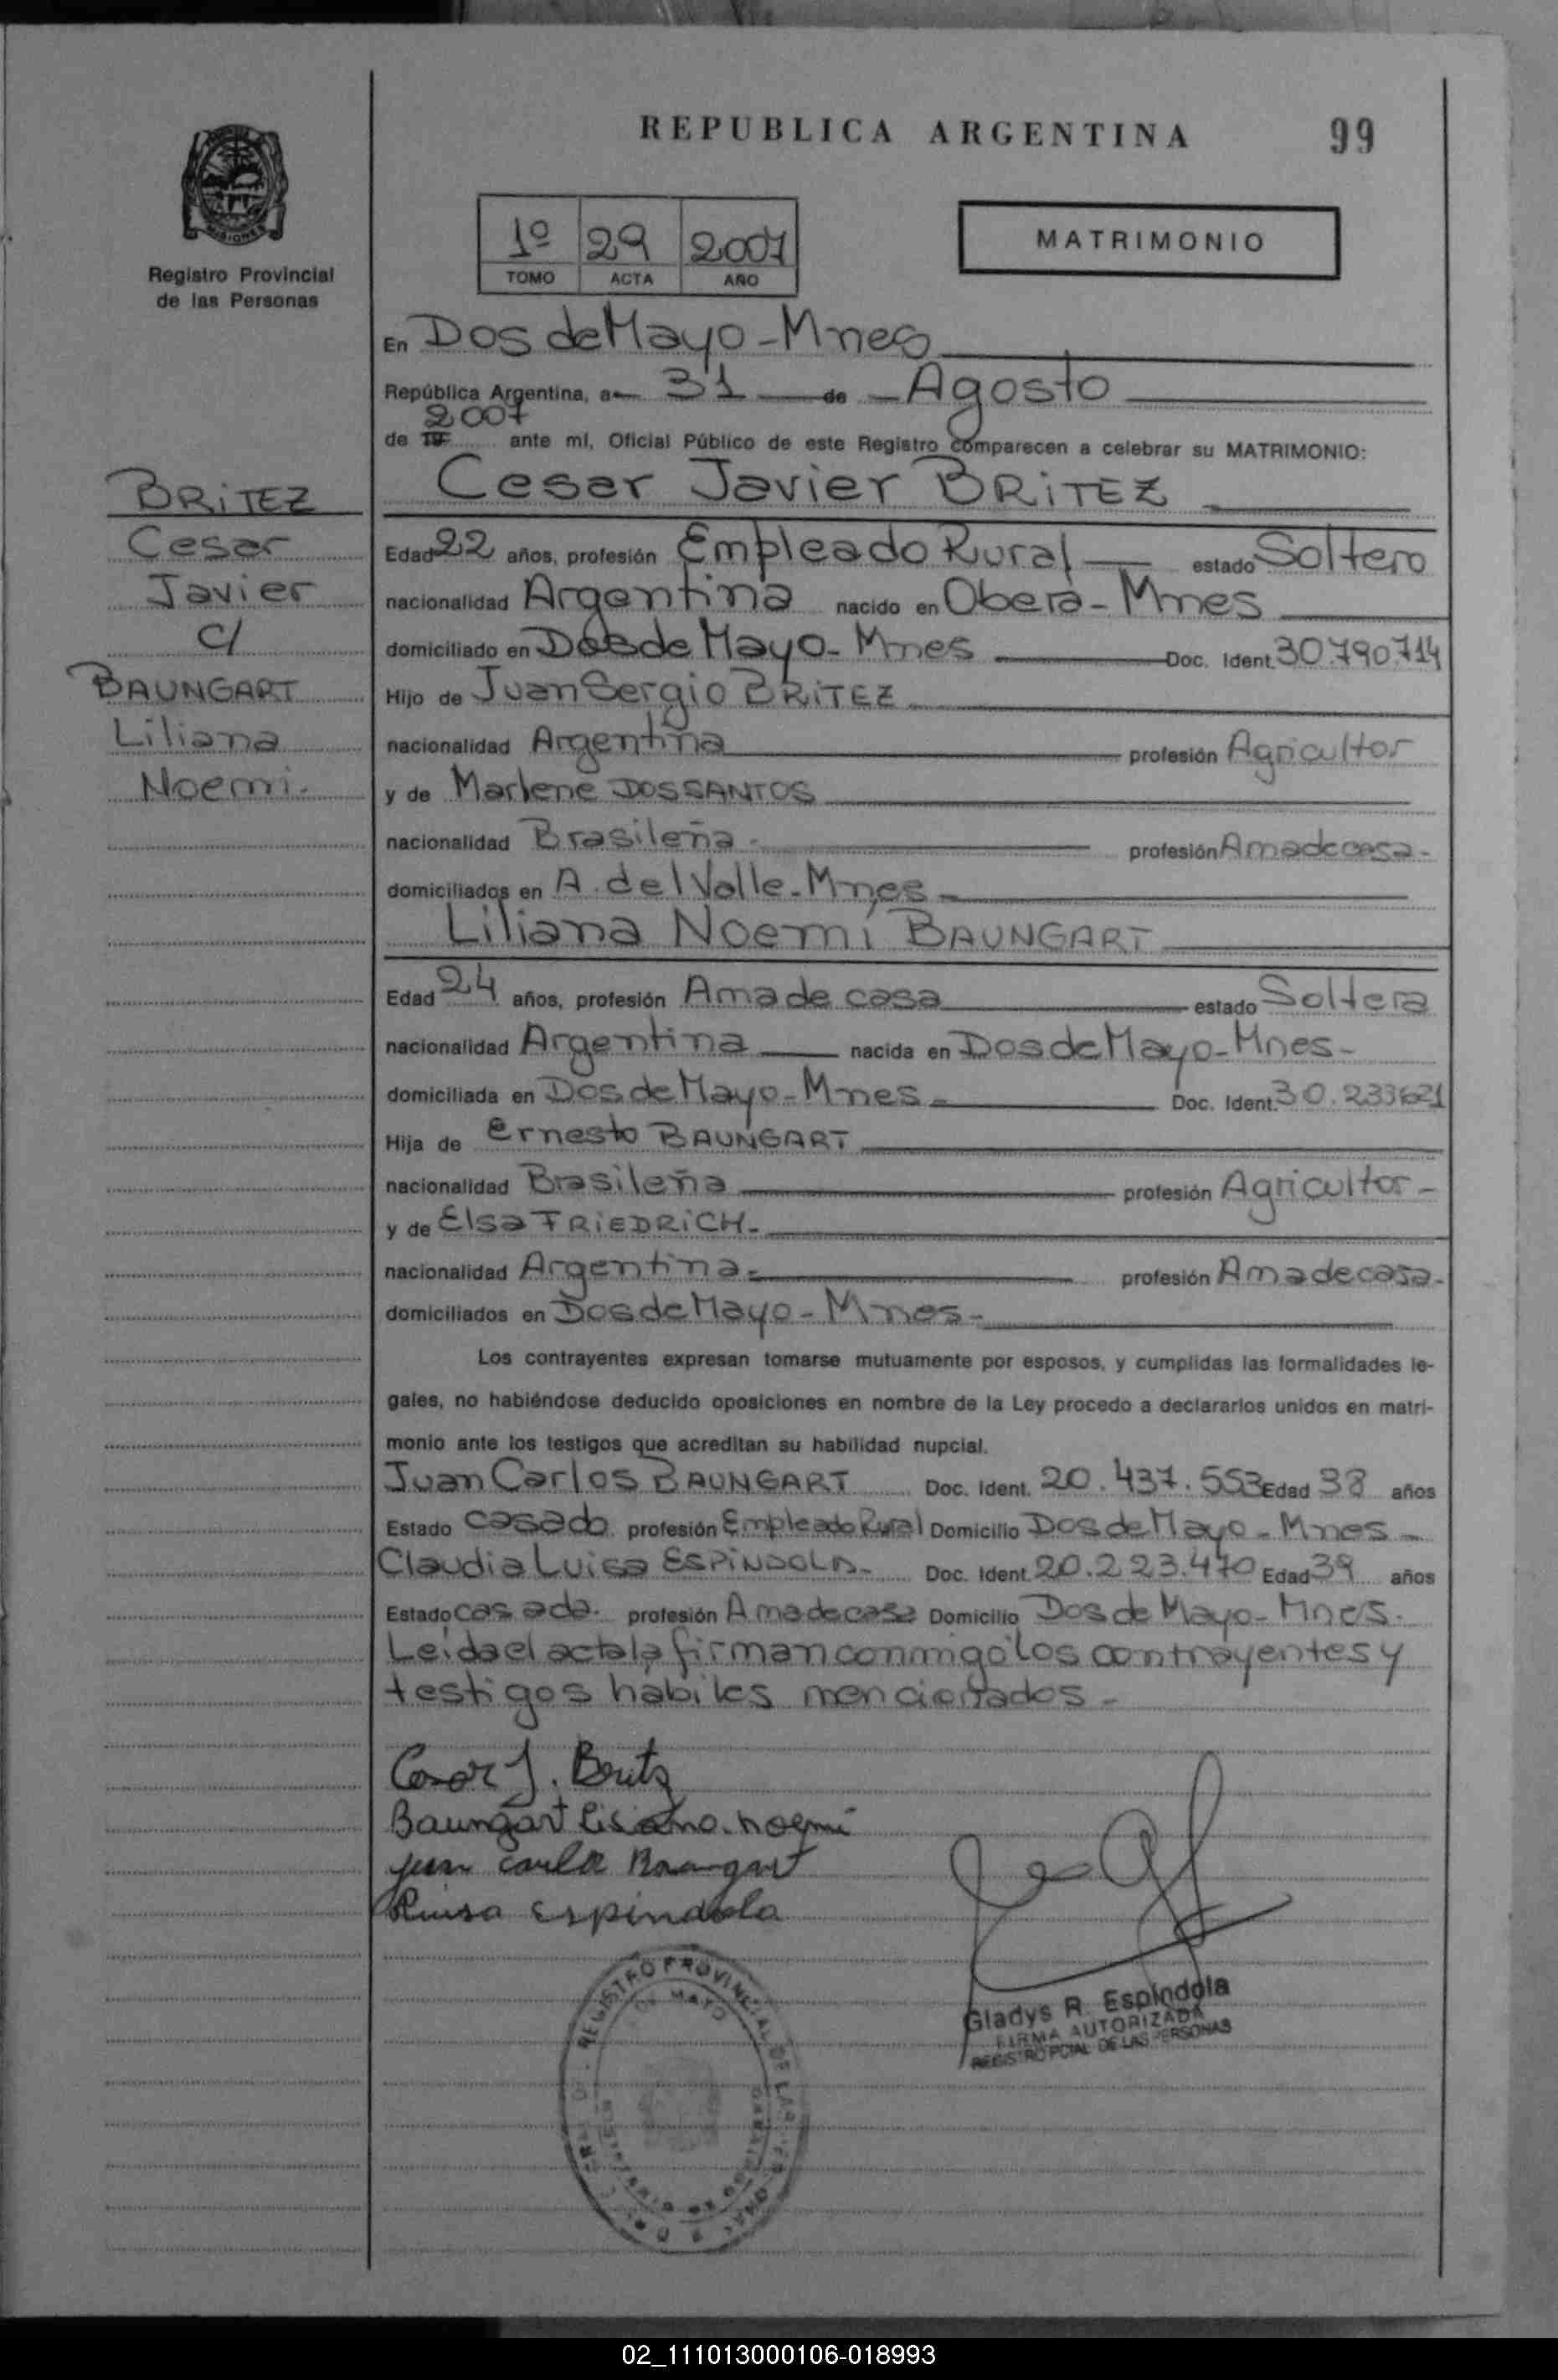 REPUBLICA ARGENTINA 99
MISIONES
Registro Provincial
de las Personas
1º 29 2007
TOMO ACTA AÑO
MATRIMONIO
En Dos de Mayo - Mnes
República Argentina, a 31 de Agosto
2007
de 19 ante mí, Oficial Público de este Registro comparecen a celebrar su MATRIMONIO:
BRITEZ
Cesar
Javier
c/
BAUNGART
Liliana
Noemi.
Cesar Javier BRITEZ
Edad 22 años, profesión Empleado Rural estado Soltero
nacionalidad Argentina nacido en Obera - Mnes
domiciliado en Dos de Mayo - Mnes Doc. Ident. 30.790.714
Hijo de Juan Sergio BRITEZ
nacionalidad Argentina profesión Agricultor
y de Marlene DOSSANTOS
nacionalidad Brasileña - profesión Ama de casa -
domiciliados en A. del Valle - Mnes -
Liliana Noemí BAUNGART
Edad 24 años, profesión Ama de casa estado Soltera
nacionalidad Argentina nacida en Dos de Mayo - Mnes -
domiciliada en Dos de Mayo - Mnes - Doc. Ident. 30.233621
Hija de Ernesto BAUNGART
nacionalidad Brasileña profesión Agricultor -
y de Elsa FRIEDRICH -
nacionalidad Argentina - profesión Ama de casa -
domiciliados en Dos de Mayo - Mnes -
Los contrayentes expresan tomarse mutuamente por esposos, y cumplidas las formalidades le-
gales, no habiéndose deducido oposiciones en nombre de la Ley procedo a declararlos unidos en matri-
monio ante los testigos que acreditan su habilidad nupcial.
Juan Carlos BAUNGART Doc. Ident. 20.437.553 Edad 38 años
Estado casado profesión Empleado Rural Domicilio Dos de Mayo - Mnes -
Claudia Luisa ESPINDOLA - Doc. Ident. 20.223.470 Edad 39 años
Estado casada. profesión Ama de casa Domicilio Dos de Mayo - Mnes.
Leída el acta la firman conmigo los contrayentes y
testigos habiles mencionados -
Cesar J. Britez
Baungart Liliana noemi
Juan Carlos Baungart
Luisa Espindola
Gladys R. Espindola
FIRMA AUTORIZADA
REGISTRO PCIAL DE LAS PERSONAS
REGISTRO PROVINCIAL DE LAS PERSONAS
02_111013000106-018993